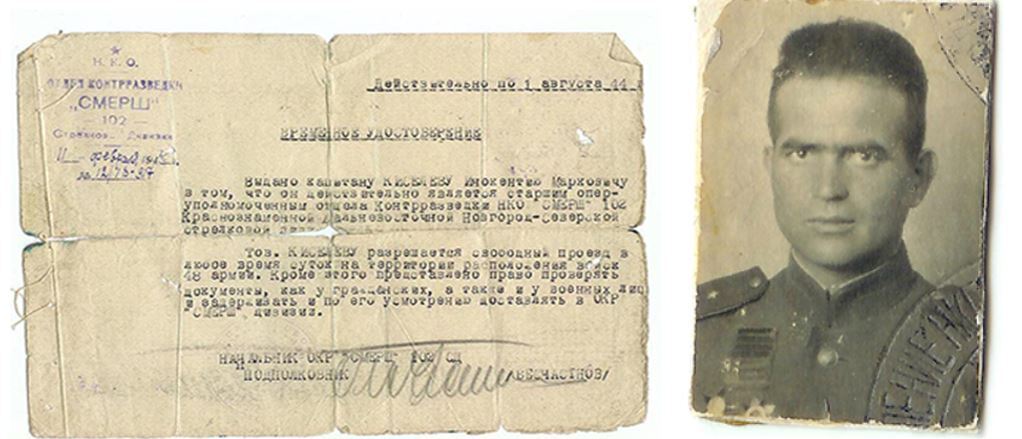 Н. К. О.
ОТДЕЛ КОНТРРАЗВЕДКИ
"СМЕРШ"
— 102 —
Стрелков. Дивизии
11 — февраля
№ 12/73-
Действительно по 1 августа 44 г
ВРЕМЕННОЕ УДОСТОВЕРЕНИЕ
Выдано капитану КИСЕЛЕВУ Инокентию Марковичу
в том, что он действительно является старшим опер-
уполномоченным отдела Контрразведки НКО "СМЕРШ" 102
Краснознаменной Дальневосточной Новгород-Северской
стрелковой
Тов. КИСЕЛЕВУ разрешается свободный проезд в
любое время суток на территории расположения войск
48 армии. Кроме этого представлено право проверять
документы, как у гражданских, а также и у военных лиц
и задерживать и по его усмотрению доставлять в ОКР
"СМЕРШ" дивизии.
НАЧАЛЬНИК ОКР "СМЕРШ" 102 СД
ПОДПОЛКОВНИК /БЕСЧАСТНОВ/